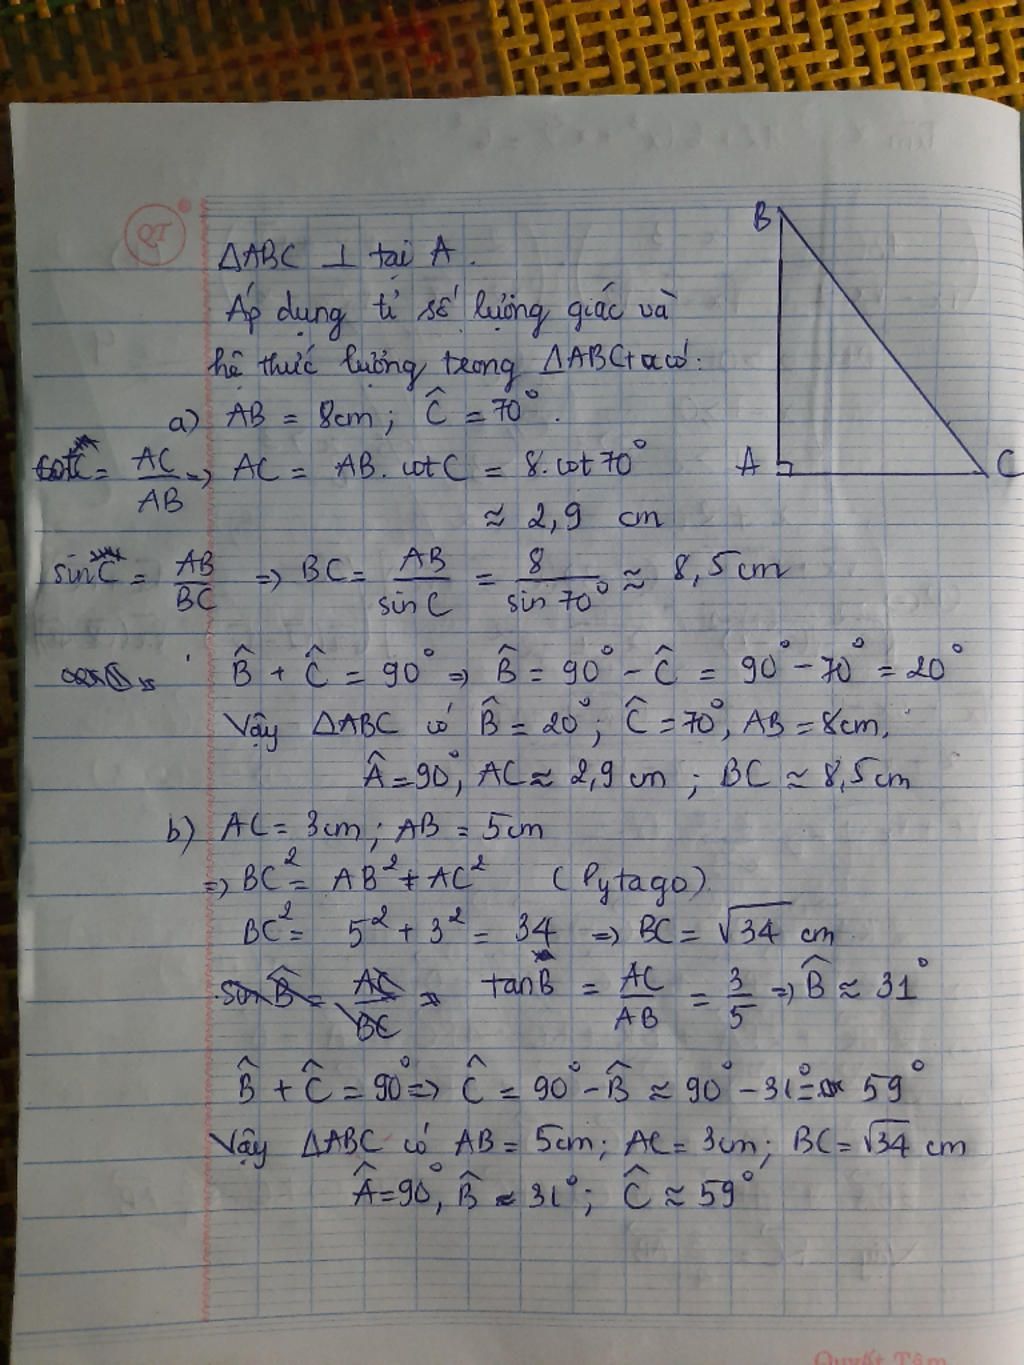 QT
ΔABC ⊥ tại A.
Áp dụng tỉ số lượng giác và
hệ thức lượng trong ΔABC ta có:
B
A
C
a) AB = 8cm; Ĉ = 70°.
cotC = AC/AB ⇒ AC = AB. cot C = 8. cot 70°
≈ 2,9 cm
sin C = AB/BC ⇒ BC = AB/sin C = 8/sin 70° ≈ 8,5cm
B̂ + Ĉ = 90° ⇒ B̂ = 90° - Ĉ = 90° - 70° = 20°
Vậy ΔABC có B̂ = 20°; Ĉ = 70°, AB = 8cm,
Â = 90°, AC ≈ 2,9 cm ; BC ≈ 8,5cm
b) AC = 3cm; AB = 5cm
⇒ BC² = AB² + AC² (Pytago)
BC² = 5² + 3² = 34 ⇒ BC = √34 cm
sin B̂ = AC/BC = tan B = AC/AB = 3/5 ⇒ B̂ ≈ 31°
B̂ + Ĉ = 90° ⇒ Ĉ = 90° - B̂ ≈ 90° - 31° = 59°
Vậy ΔABC có AB = 5cm; AC = 3cm; BC = √34 cm
Â = 90°, B̂ ≈ 31°; Ĉ ≈ 59°
Quyết Tâm